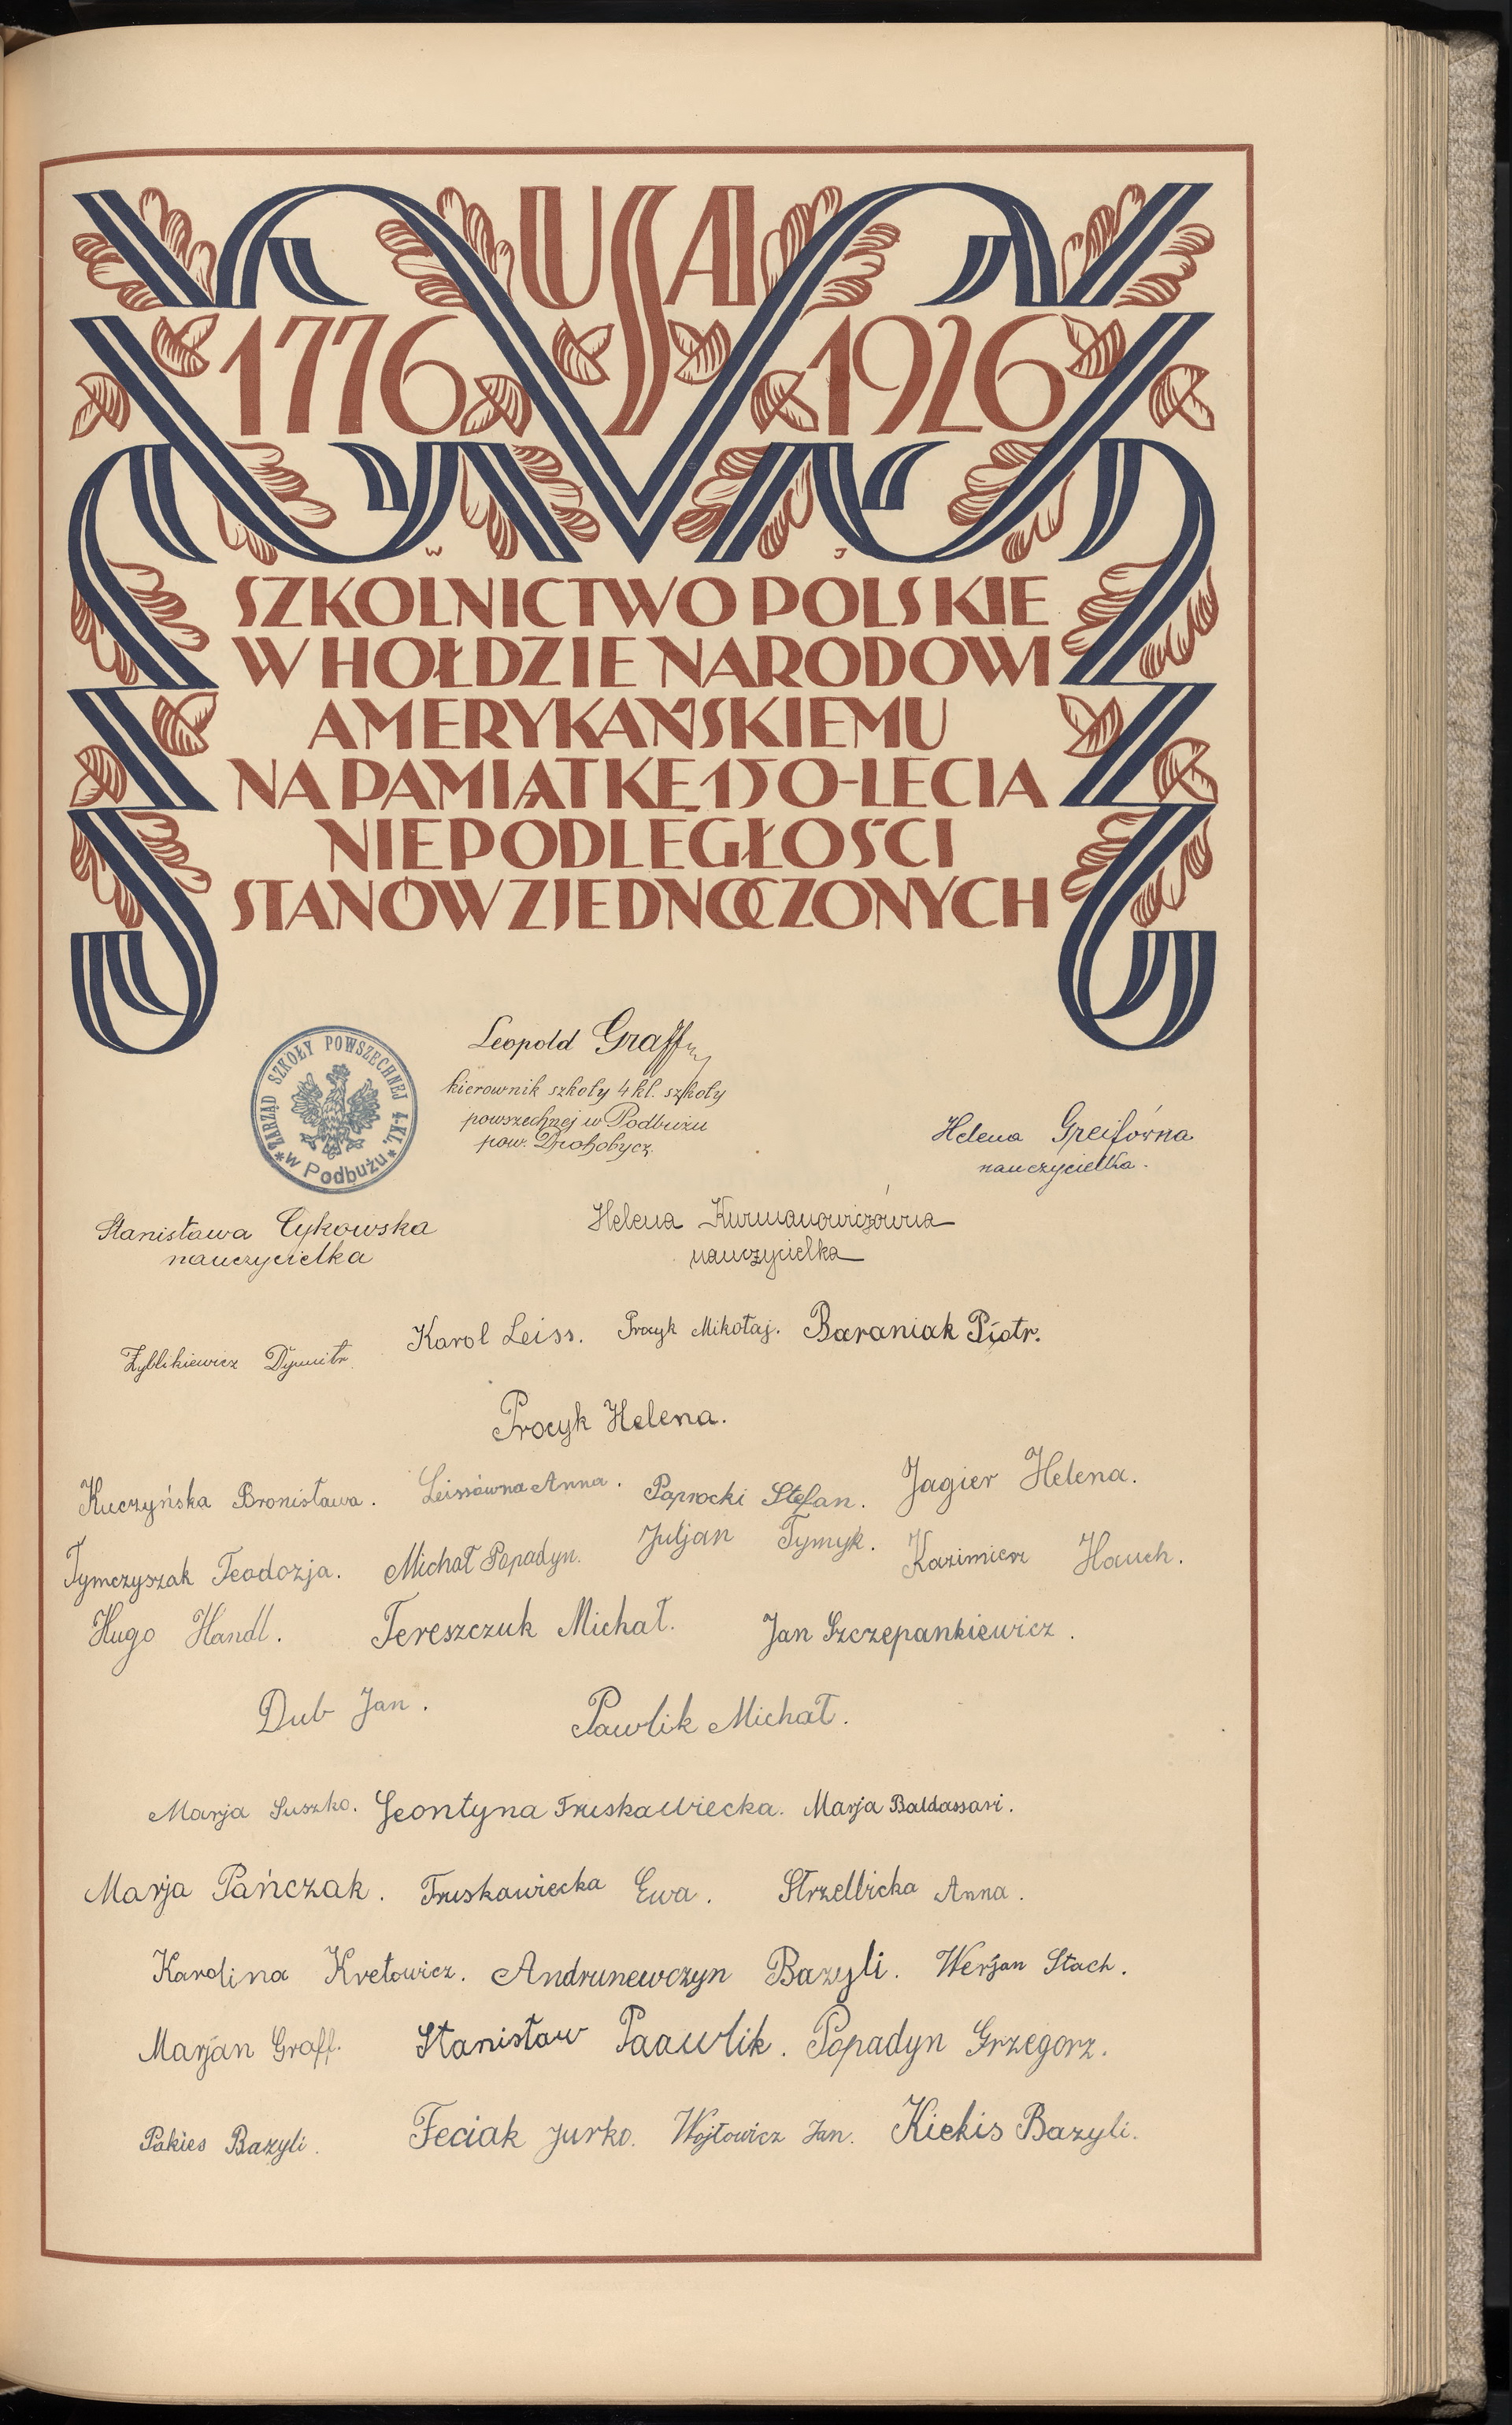 USA
1776 1926
W J
SZKOLNICTWO POLSKIE
W HOŁDZIE NARODOWI
AMERYKAŃSKIEMU
NA PAMIĄTKĘ 150-LECIA
NIEPODLEGŁOŚCI
STANÓW ZJEDNOCZONYCH
ZARZĄD SZKOŁY POWSZECHNEJ 4-KL.
* w Podbużu *
Leopold Graff
kierownik szkoły 4 kl. szkoły
powszechnej w Podbużu
pow. Drohobycz.
Helena Greifówna
nauczycielka.
Stanisława Cykowska
nauczycielka
Helena Kurmanowiczówna
nauczycielka
Żyblikiewicz Dymitr. Karol Leiss. Procyk Mikołaj. Baraniak Piotr.
Procyk Helena.
Kuczyńska Bronisława. Leissówna Anna. Paprocki Stefan. Jagier Helena.
Tymczyszak Teodozja. Michał Popadyn. Juljan Tymyk. Kazimierz Hauch.
Hugo Handl. Tereszczuk Michał. Jan Szczepankiewicz.
Dub Jan. Pawlik Michał.
Marja Suszko. Leontyna Truskawiecka. Marja Baldassari.
Marja Pańczak. Truskawiecka Ewa. Strzelbicka Anna.
Karolina Kretowicz. Andrunewczyn Bazyli. Werjan Stach.
Marjan Graff. Stanisław Paawlik. Popadyn Grzegorz.
Pakies Bazyli. Feciak Jurko. Wojtowicz Jan. Kiekis Bazyli.